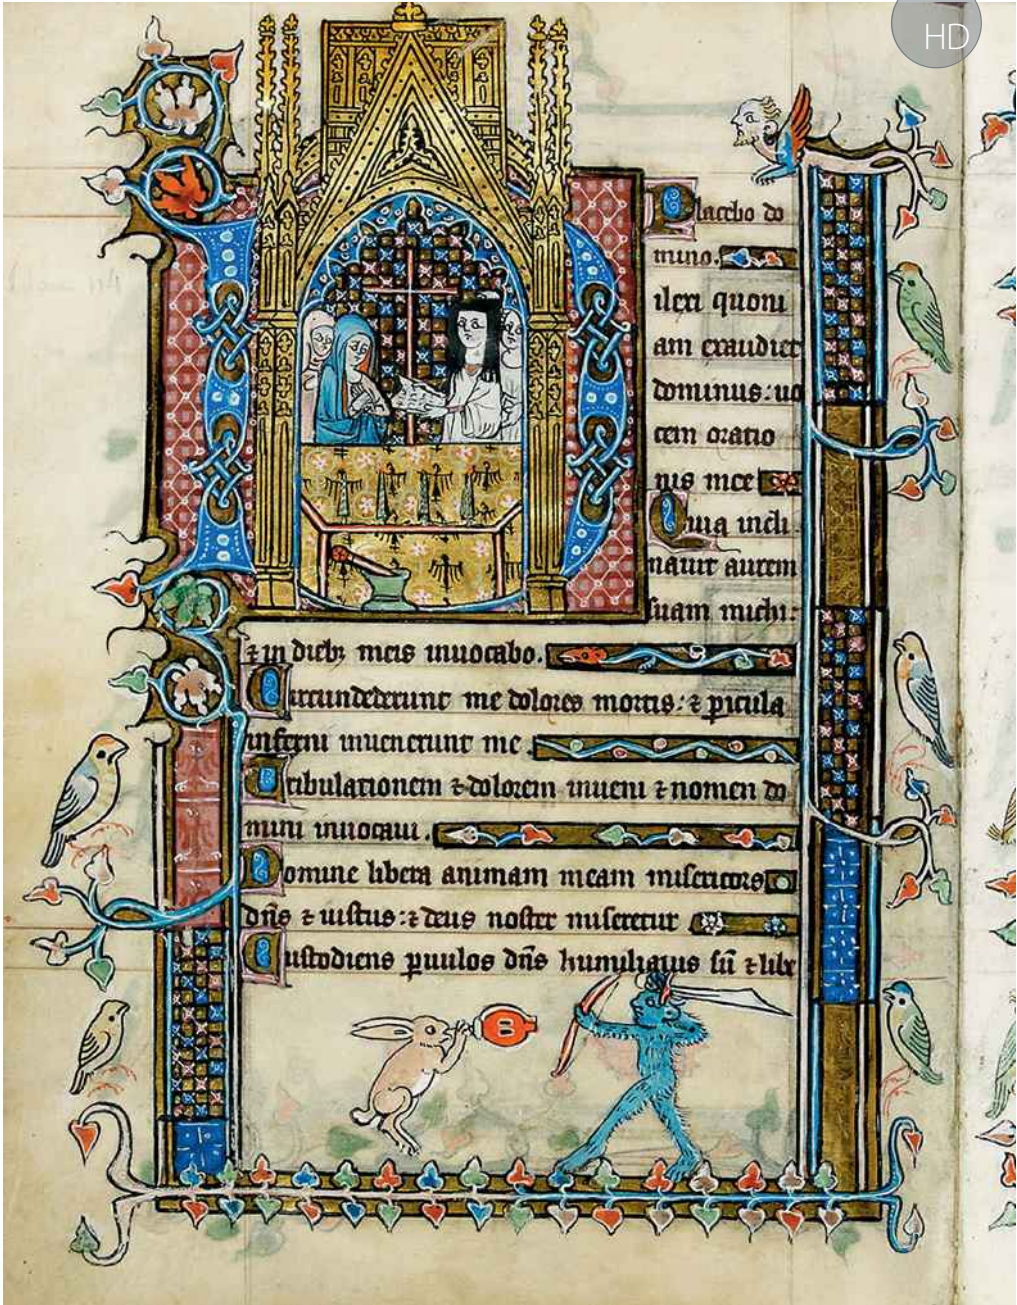 HD
Placebo do
mino.
Dilexi quoni
am exaudiet
dominus: uo
cem oratio
nis mee
Quia incli
nauit aurem
suam michi:
⁊ in diebꝫ meis inuocabo.
Circundederunt me dolores mortis: ⁊ ꝑicula
inferni inuenerunt me.
Tribulationem ⁊ dolorem inueni ⁊ nomen do
mini inuocaui.
Domine libera animam meam misericors
dñs ⁊ iustus: ⁊ deus noster miseretur
Custodiens ꝑuulos dñs humiliatus sū ⁊ libe